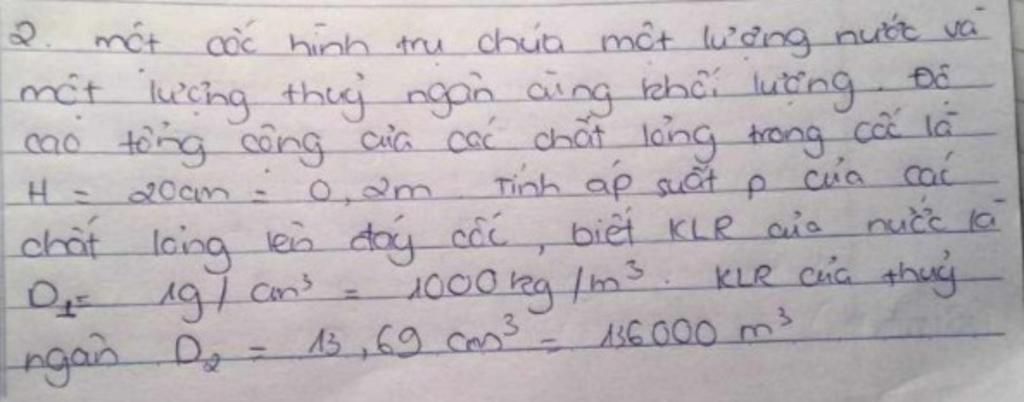 2. một cốc hình trụ chứa một lượng nước và
một lượng thuỷ ngân cùng khối lượng. Độ
cao tổng cộng của các chất lỏng trong cốc là
H = 20cm = 0,2m Tính áp suất p của các
chất lỏng lên đáy cốc, biết KLR của nước là
D₁= 1g/cm³ = 1000kg/m³. KLR của thuỷ
ngân D₂ = 13,6g cm³ = 136000 m³